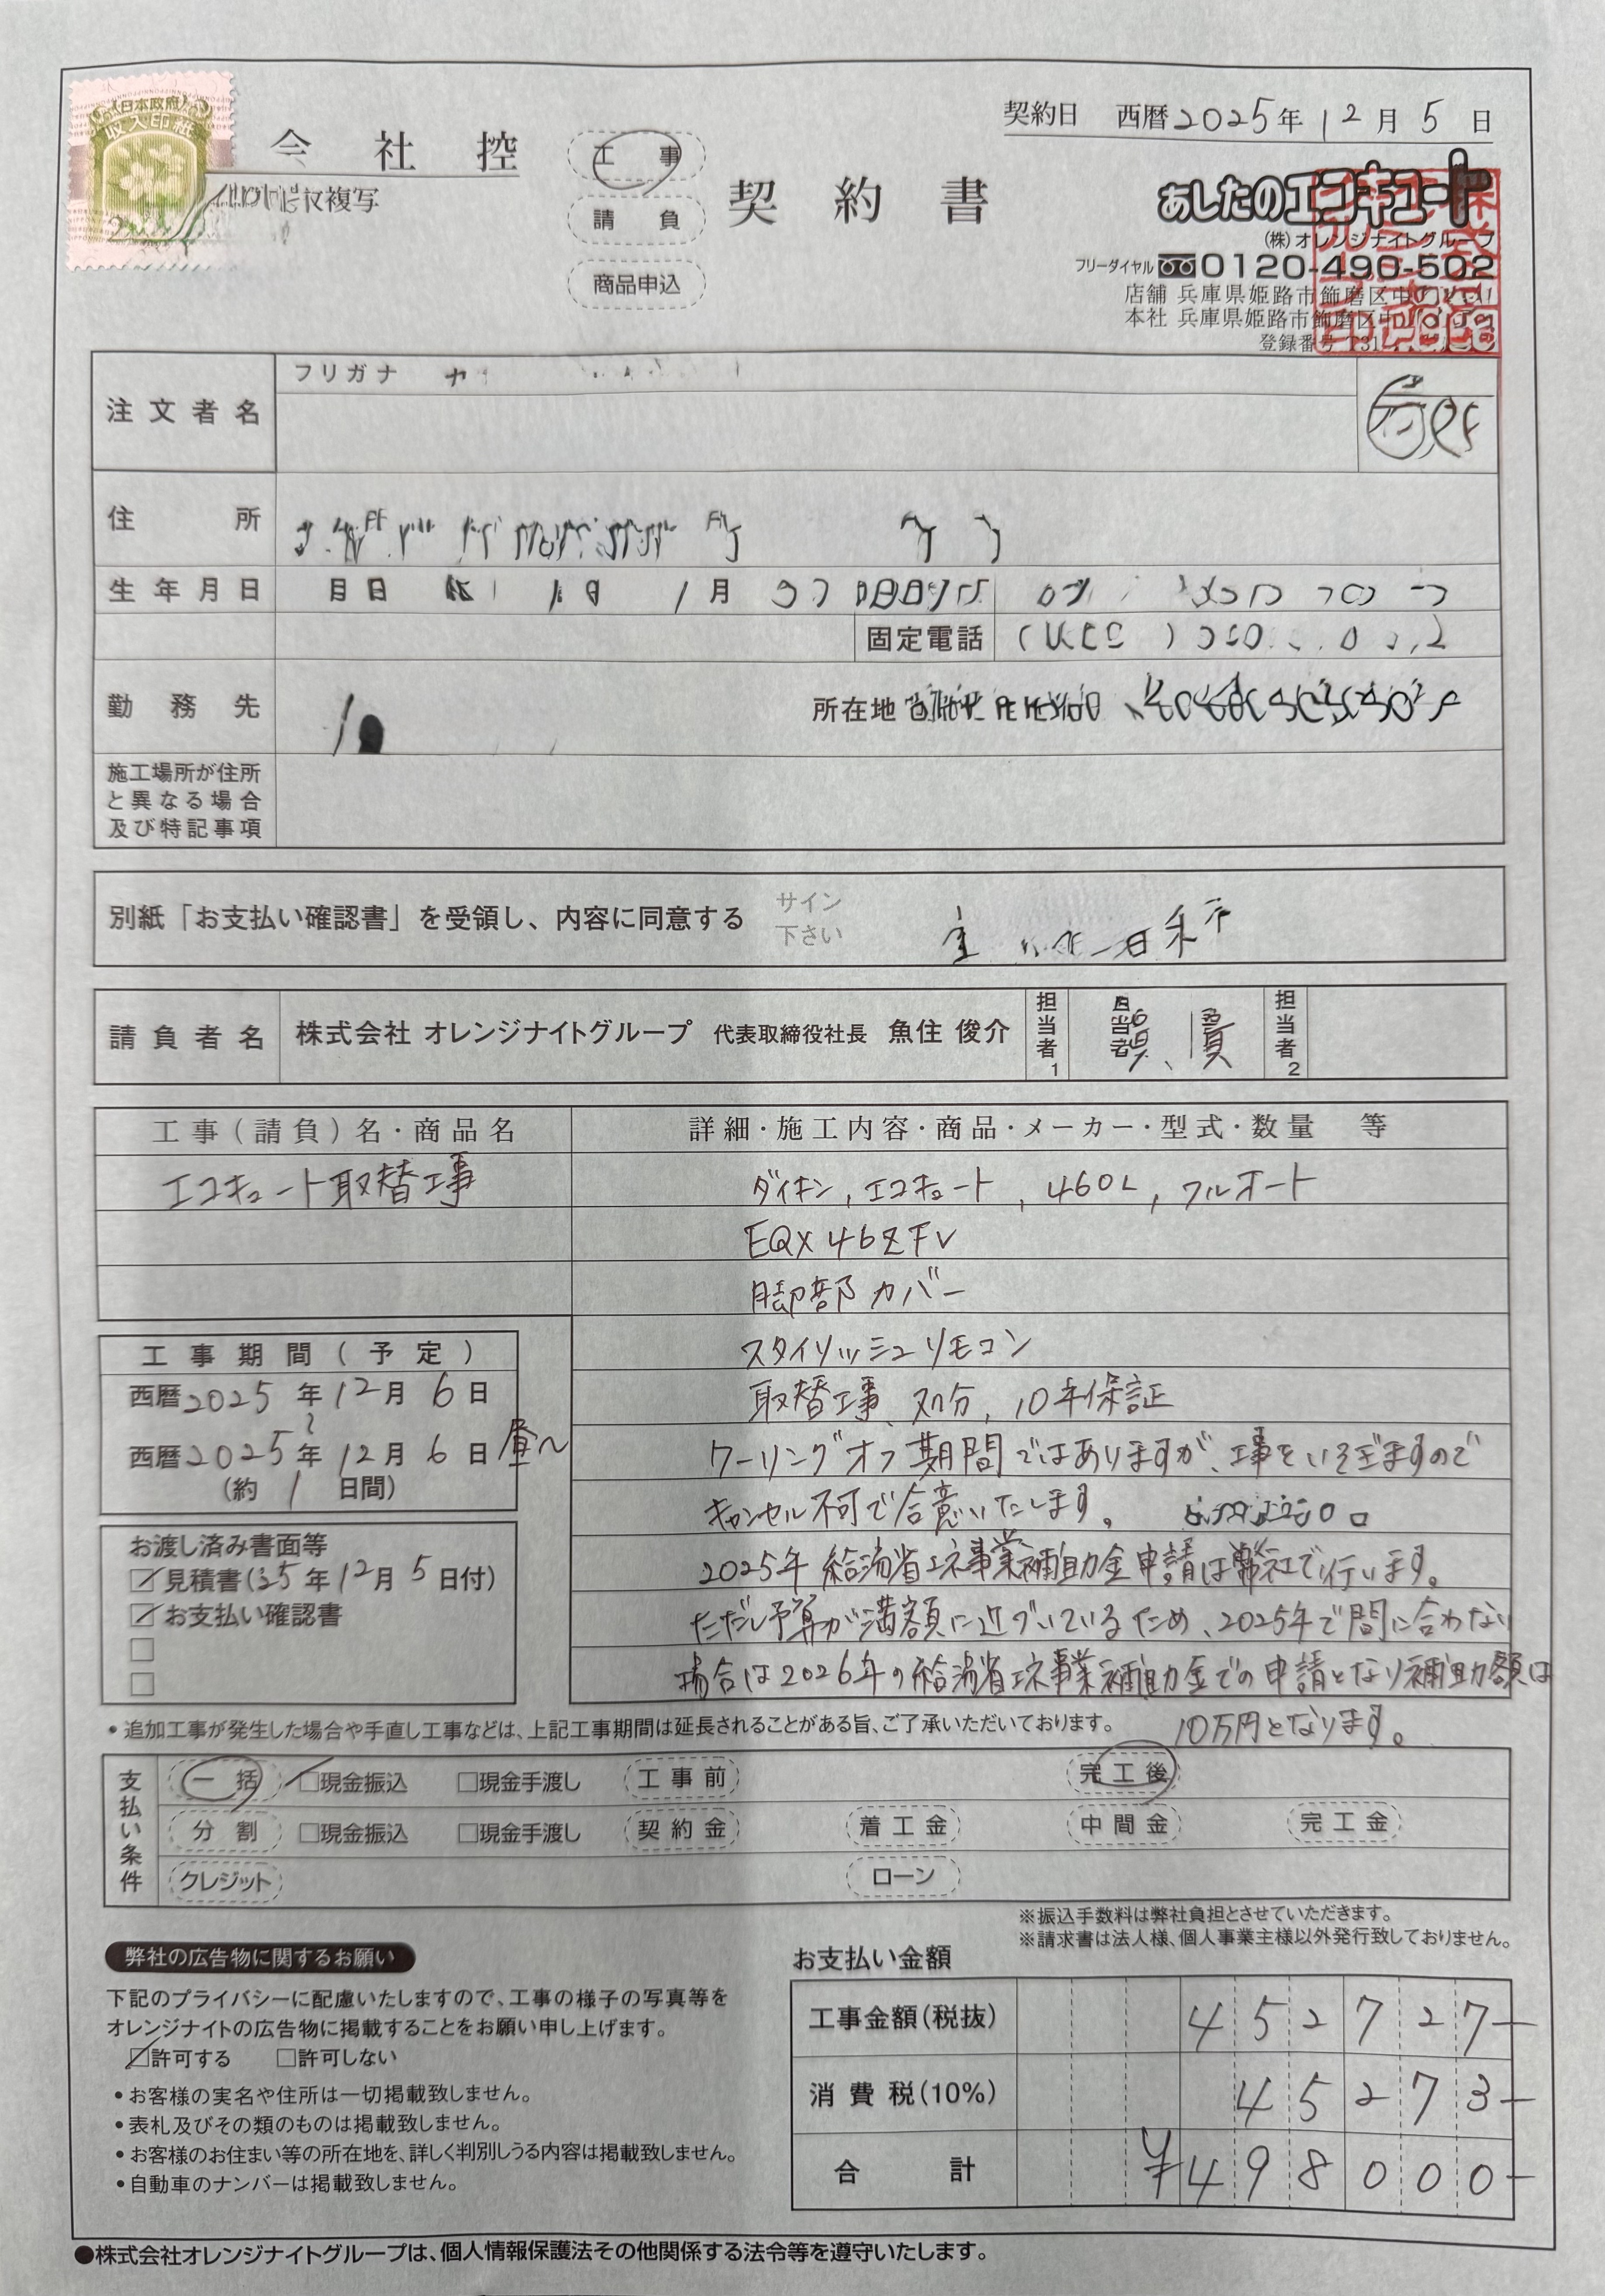 契約日 西暦2025年12月5日
日本政府
収入印紙
会社控
複写
工事
請負
商品申込
契約書
あしたのエコキュート
(株)オレンジナイトグループ
フリーダイヤル 0120-490-502
店舗 兵庫県姫路市飾磨区中
本社 兵庫県姫路市飾磨区中
登録番号
注文者名
フリガナ
住所
生年月日
固定電話
勤務先
所在地
施工場所が住所
と異なる場合
及び特記事項
別紙「お支払い確認書」を受領し、内容に同意する
サイン
下さい
請負者名 株式会社 オレンジナイトグループ 代表取締役社長 魚住 俊介 担当者1 担当者2
工事(請負)名・商品名
詳細・施工内容・商品・メーカー・型式・数量 等
エコキュート取替工事
ダイキン, エコキュート, 460L, フルオート
EQX46ZFV
脚部カバー
スタイリッシュリモコン
取替工事、処分, 10年保証
クーリングオフ期間ではありますが、工事をいそぎますので
キャンセル不可で合意いたします。
2025年給湯省エネ事業補助金申請は弊社で行います。
ただし予算が満額に近づいているため、2025年で間に合わない
場合は2026年の給湯省エネ事業補助金での申請となり補助額は
10万円となります。
工事期間(予定)
西暦2025年12月6日
~
西暦2025年12月6日 昼~
(約1日間)
お渡し済み書面等
見積書('25年12月5日付)
お支払い確認書
•追加工事が発生した場合や手直し工事などは、上記工事期間は延長されることがある旨、ご了承いただいております。
支払い条件
一括 □現金振込 □現金手渡し 工事前 完工後
分割 □現金振込 □現金手渡し 契約金 着工金 中間金 完工金
クレジット ローン
※振込手数料は弊社負担とさせていただきます。
※請求書は法人様、個人事業主様以外発行致しておりません。
弊社の広告物に関するお願い
下記のプライバシーに配慮いたしますので、工事の様子の写真等を
オレンジナイトの広告物に掲載することをお願い申し上げます。
許可する □許可しない
•お客様の実名や住所は一切掲載致しません。
•表札及びその類のものは掲載致しません。
•お客様のお住まい等の所在地を、詳しく判別しうる内容は掲載致しません。
•自動車のナンバーは掲載致しません。
お支払い金額
工事金額(税抜) 452727-
消費税(10%) 45273-
合計 ¥498000-
●株式会社オレンジナイトグループは、個人情報保護法その他関係する法令等を遵守いたします。